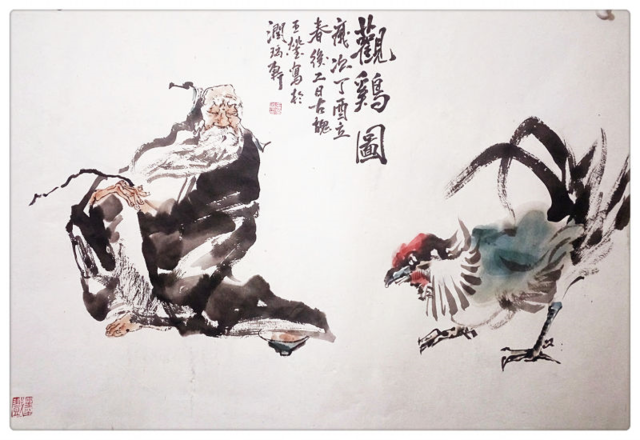 觀鷄圖
歲次丁酉立
春後二日古槐
王瑩寫於
潤瑞軒